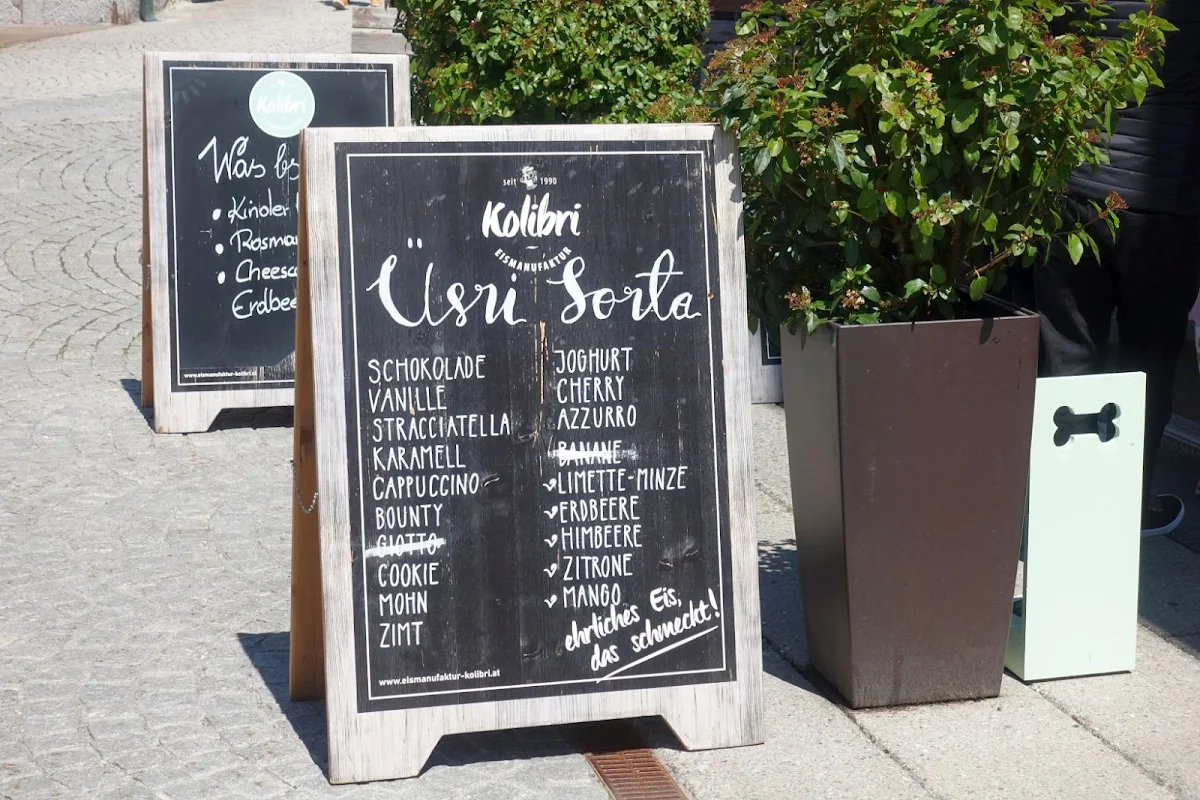 Kolibri
Was
Kinder
Erdbee
www.eismanufaktur-kolibri.at
seit 1990
Kolibri
EISMANUFAKTUR
Üsri Sorta
SCHOKOLADE
VANILLE
STRACCIATELLA
KARAMELL
CAPPUCCINO
BOUNTY
GIOTTO
COOKIE
MOHN
ZIMT
JOGHURT
CHERRY
AZZURRO
BANANE
LIMETTE-MINZE
ERDBEERE
HIMBEERE
ZITRONE
MANGO
ehrliches Eis,
das schmeckt!
www.eismanufaktur-kolibri.at